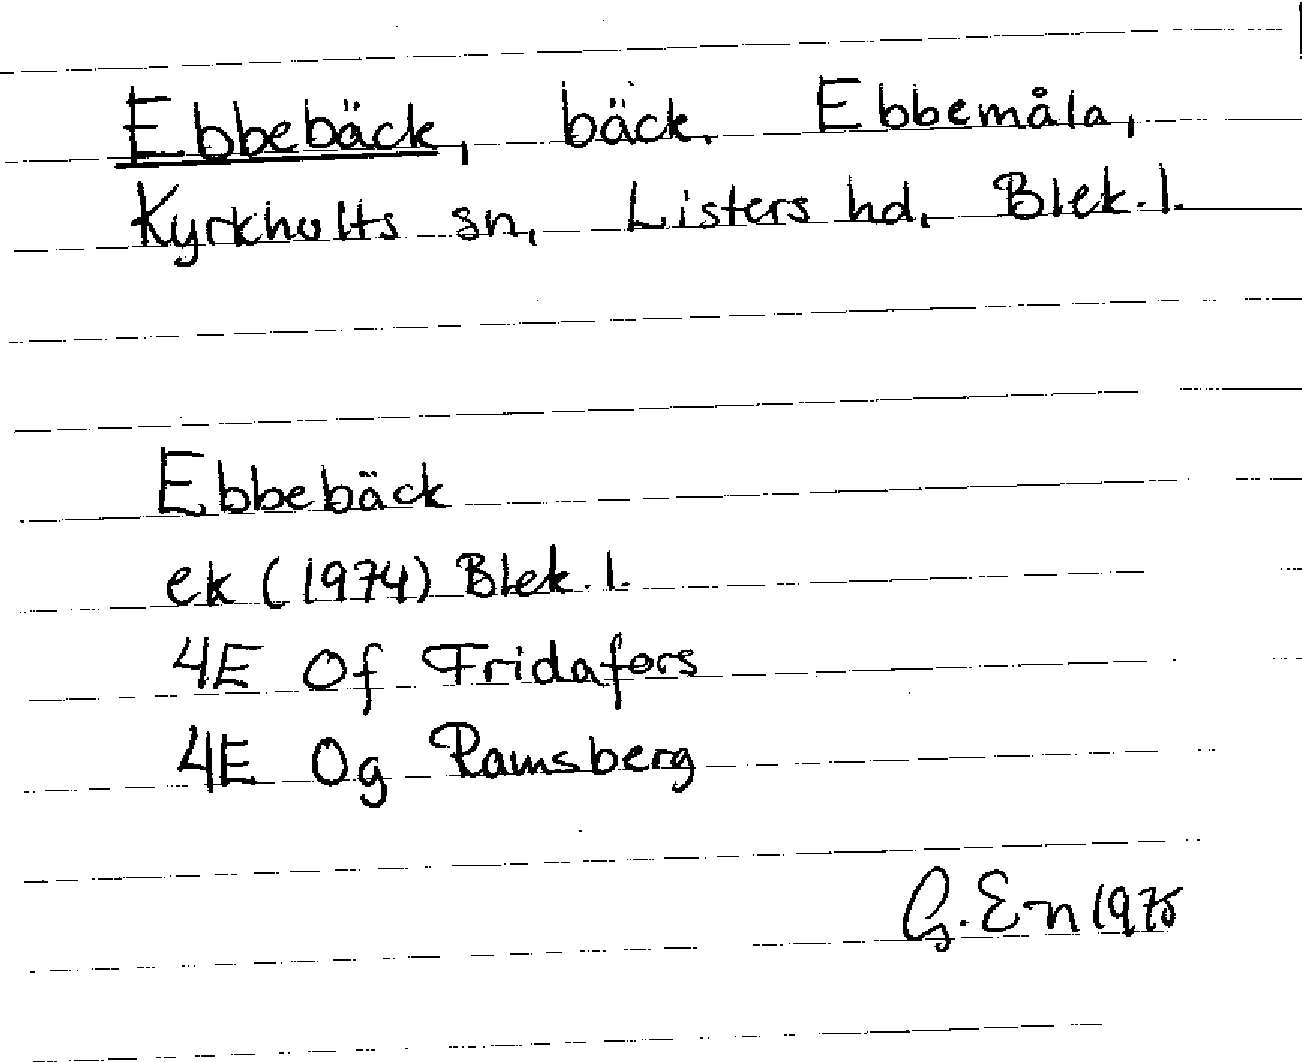 Ebbebäck, bäck. Ebbemåla,
Kyrkhults sn, Listers hd, Blek. l.
Ebbebäck
ek (1974) Blek. l.
4E 0f Fridafors
4E 0g Ramsberg
G. E-n 1975